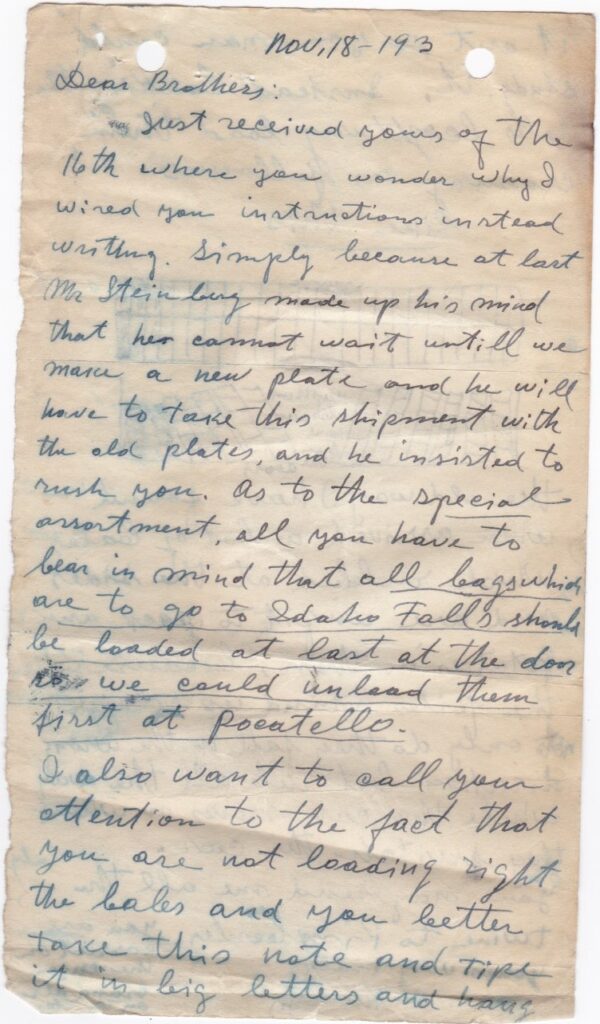 Nov, 18 - 193
Dear Brothers:
Just received yours of the
16th where you wonder why I
wired you instructions instead
writing. Simply because at last
Mr Steinburg made up his mind
that he cannot wait untill we
make a new plate and he will
have to take this shipment with
the old plates, and he insisted to
rush you. As to the special
assortment, all you have to
bear in mind that all bags which
are to go to Idaho Falls should
be loaded at last at the door
so we could unload them
first at Pocatello.
I also want to call your
attention to the fact that
you are not loading right
the bales and you better
take this note and tipe
it in big letters and hang